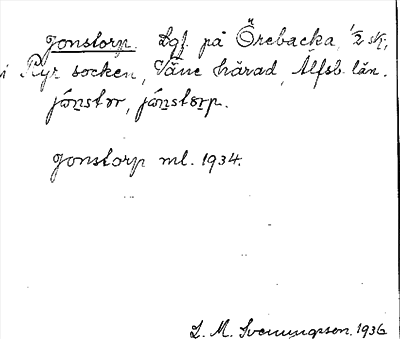 Jonstorp. Lgf. på Örebacka, 1/2 sk,
i Ryr socken, Väne härad, Älfsb. län.
jǻnstor, jǻnstorp.
Jonstorp ml. 1934.
L. M. Svenungsson. 1936